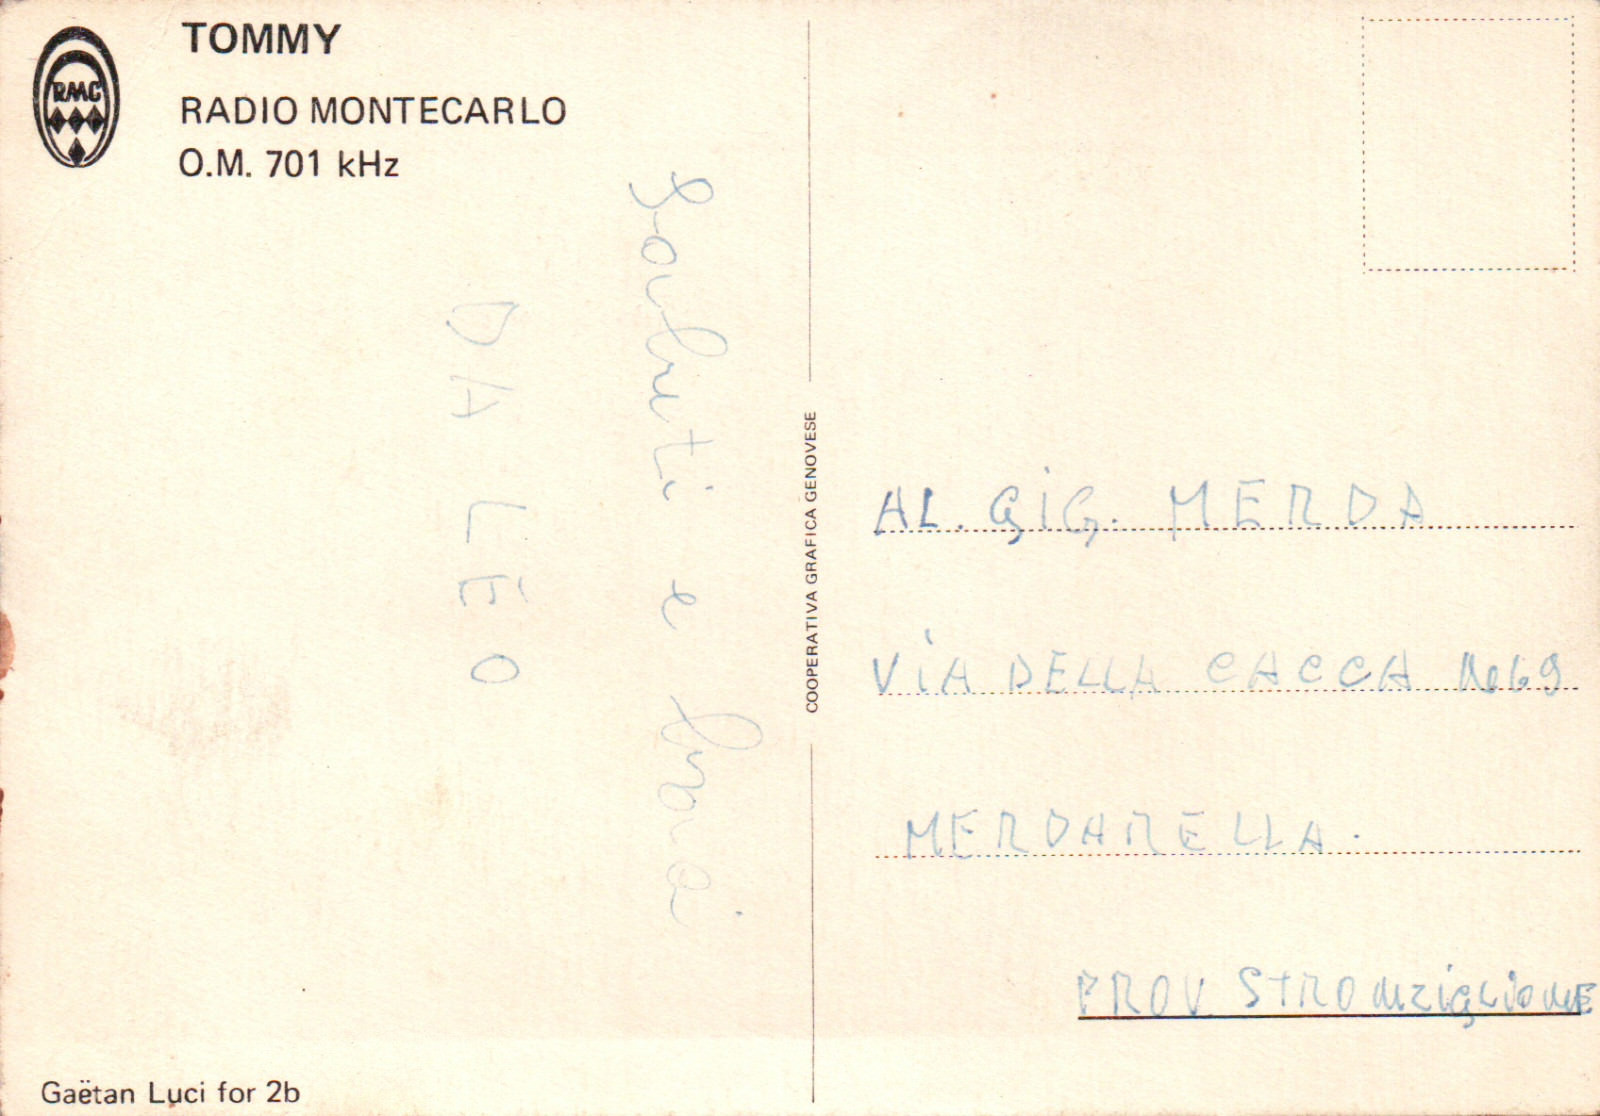 RMC
TOMMY
RADIO MONTECARLO
O.M. 701 kHz
Saluti e baci
DA LEO
COOPERATIVA GRAFICA GENOVESE
AL. SIG. MERDA
VIA DELLA CACCA No 69
MERDARELLA.
PROV STRONZIGLIONE
Gaëtan Luci for 2b